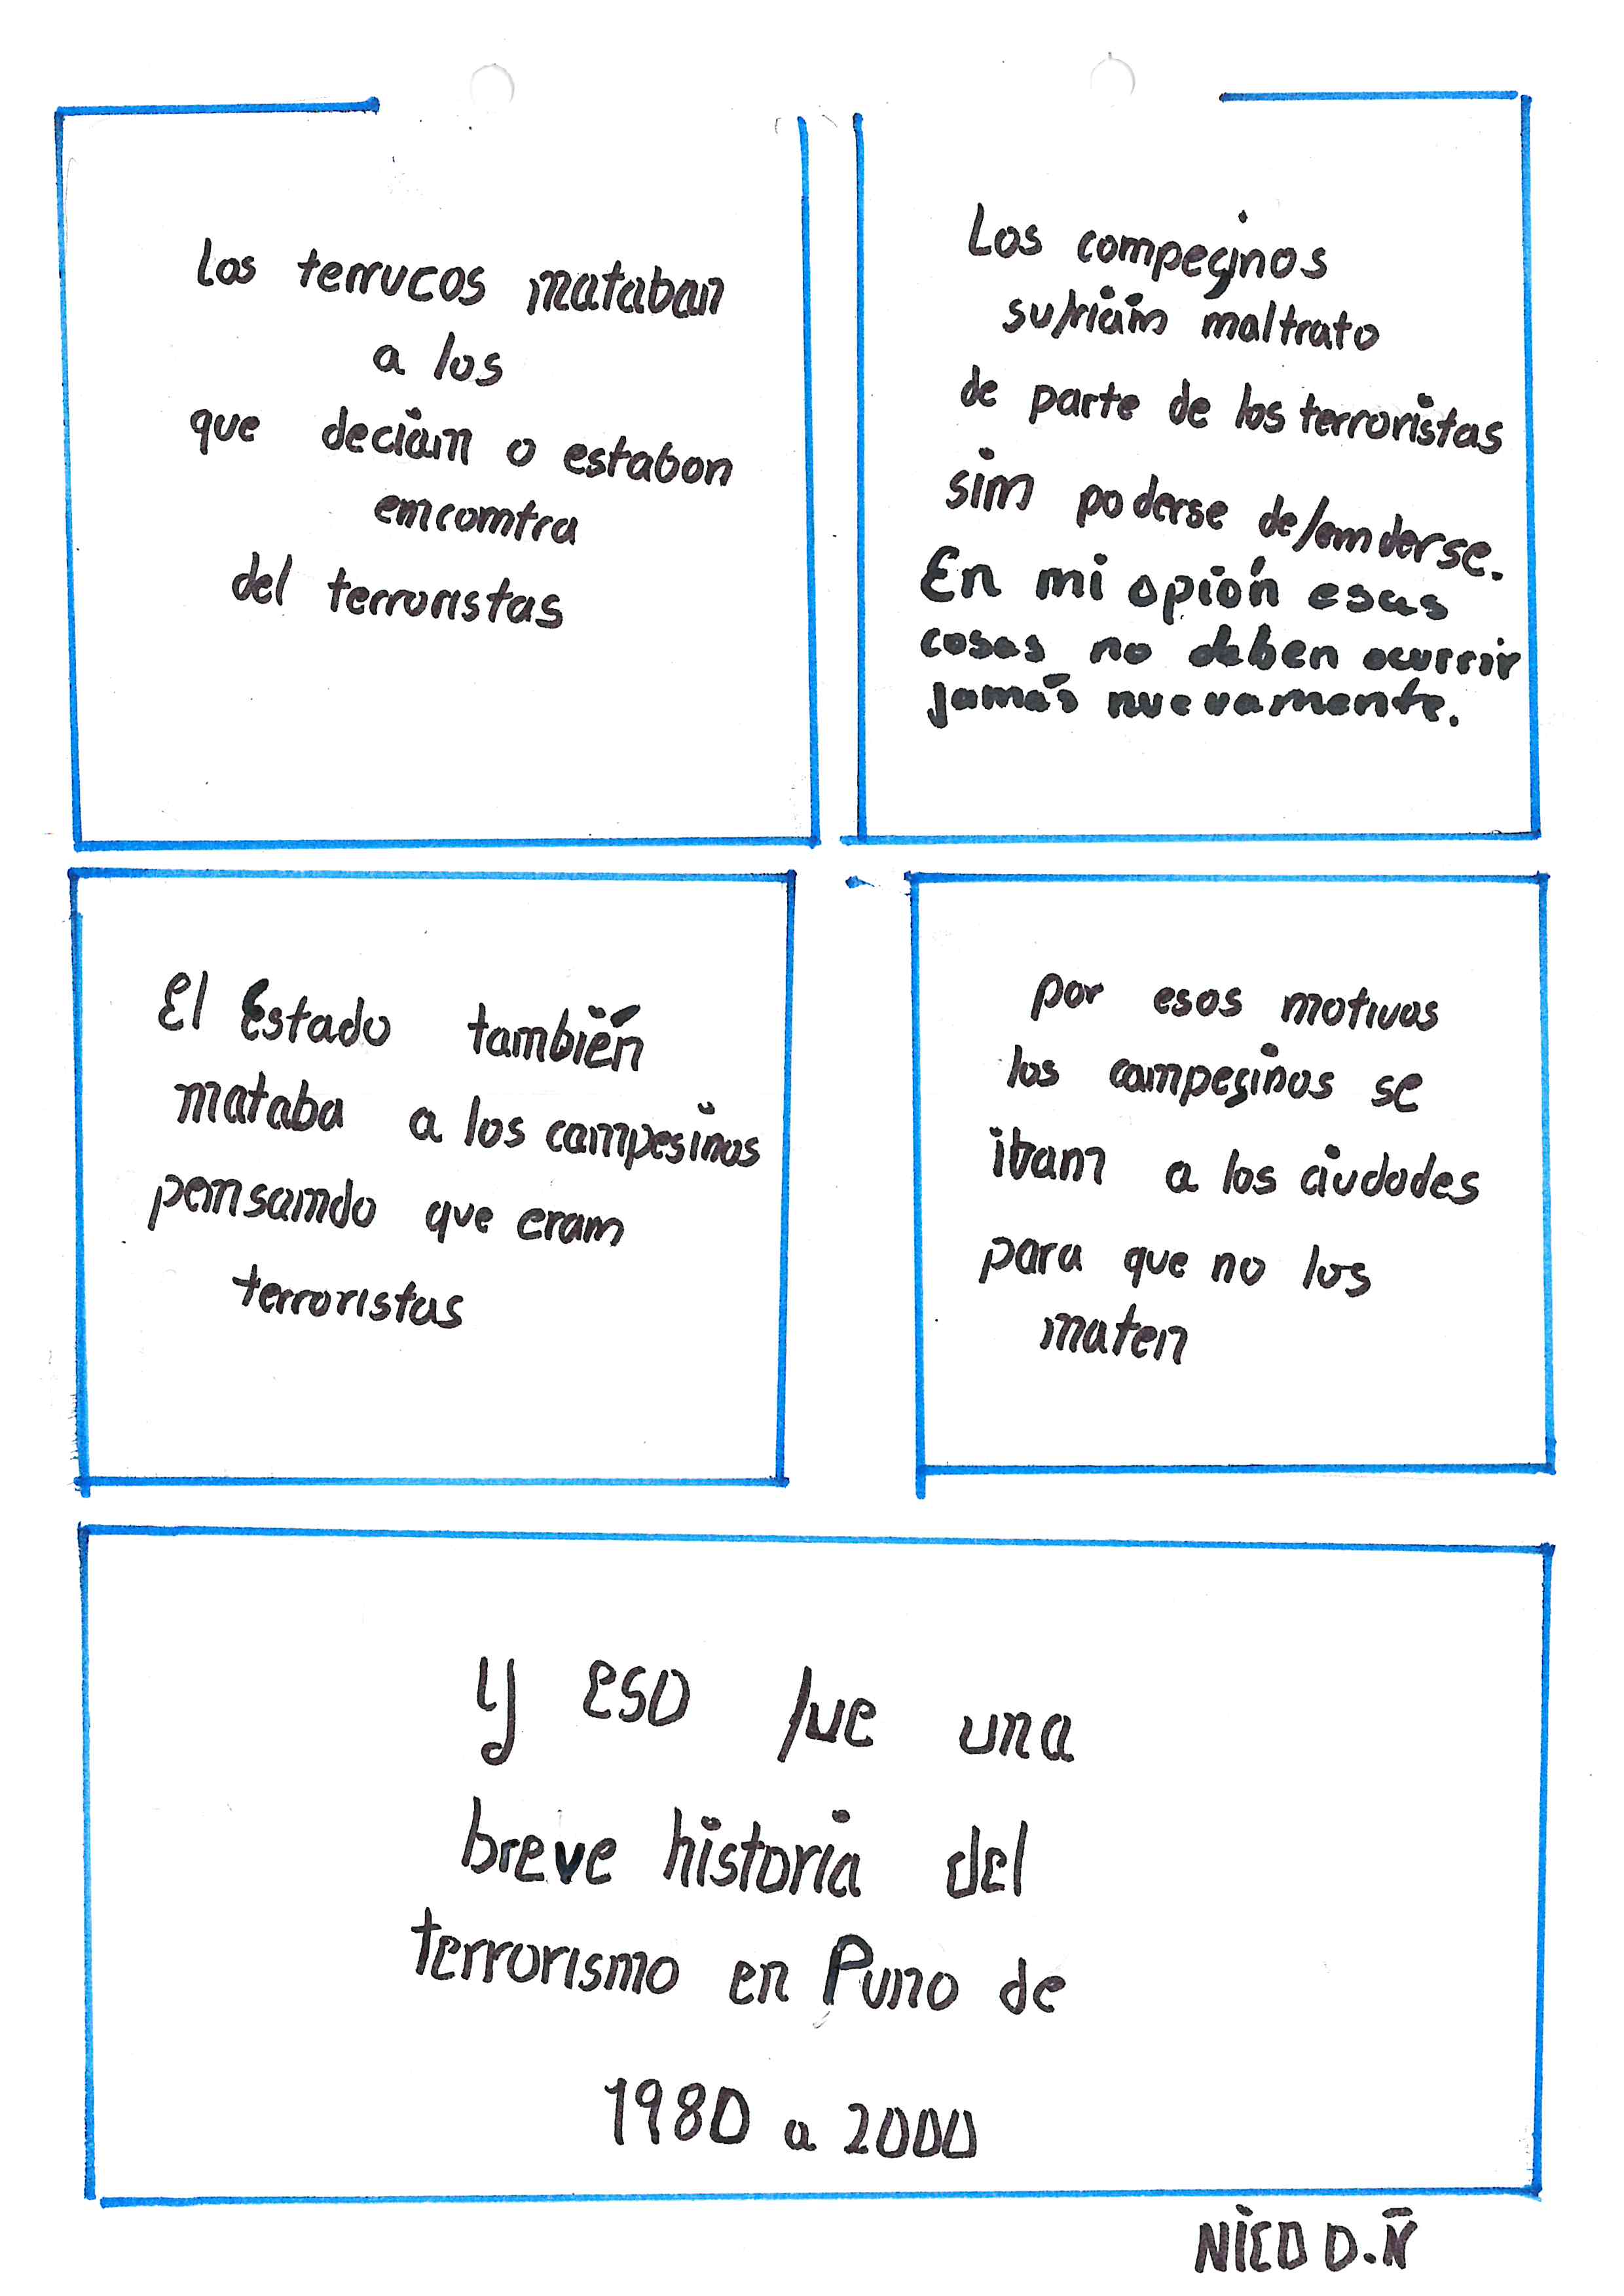 Los terrucos mataban
a los
que decián o estabon
emcomtra
del terroristas
Los compecinos
sufriam maltrato
de parte de los terroristas
sim poderse defemderse.
En mi opión esas
cosas no deben ocurrir
jamás nuevamente.
El Estado también
mataba a los campesinos
pemsamdo que eram
terroristas
por esos motivos
los campesinos se
ibam a los ciudodes
para que no los
maten
y eso fue una
breve historia del
terrorismo en Puno de
1980 a 2000
NICO D.Ñ